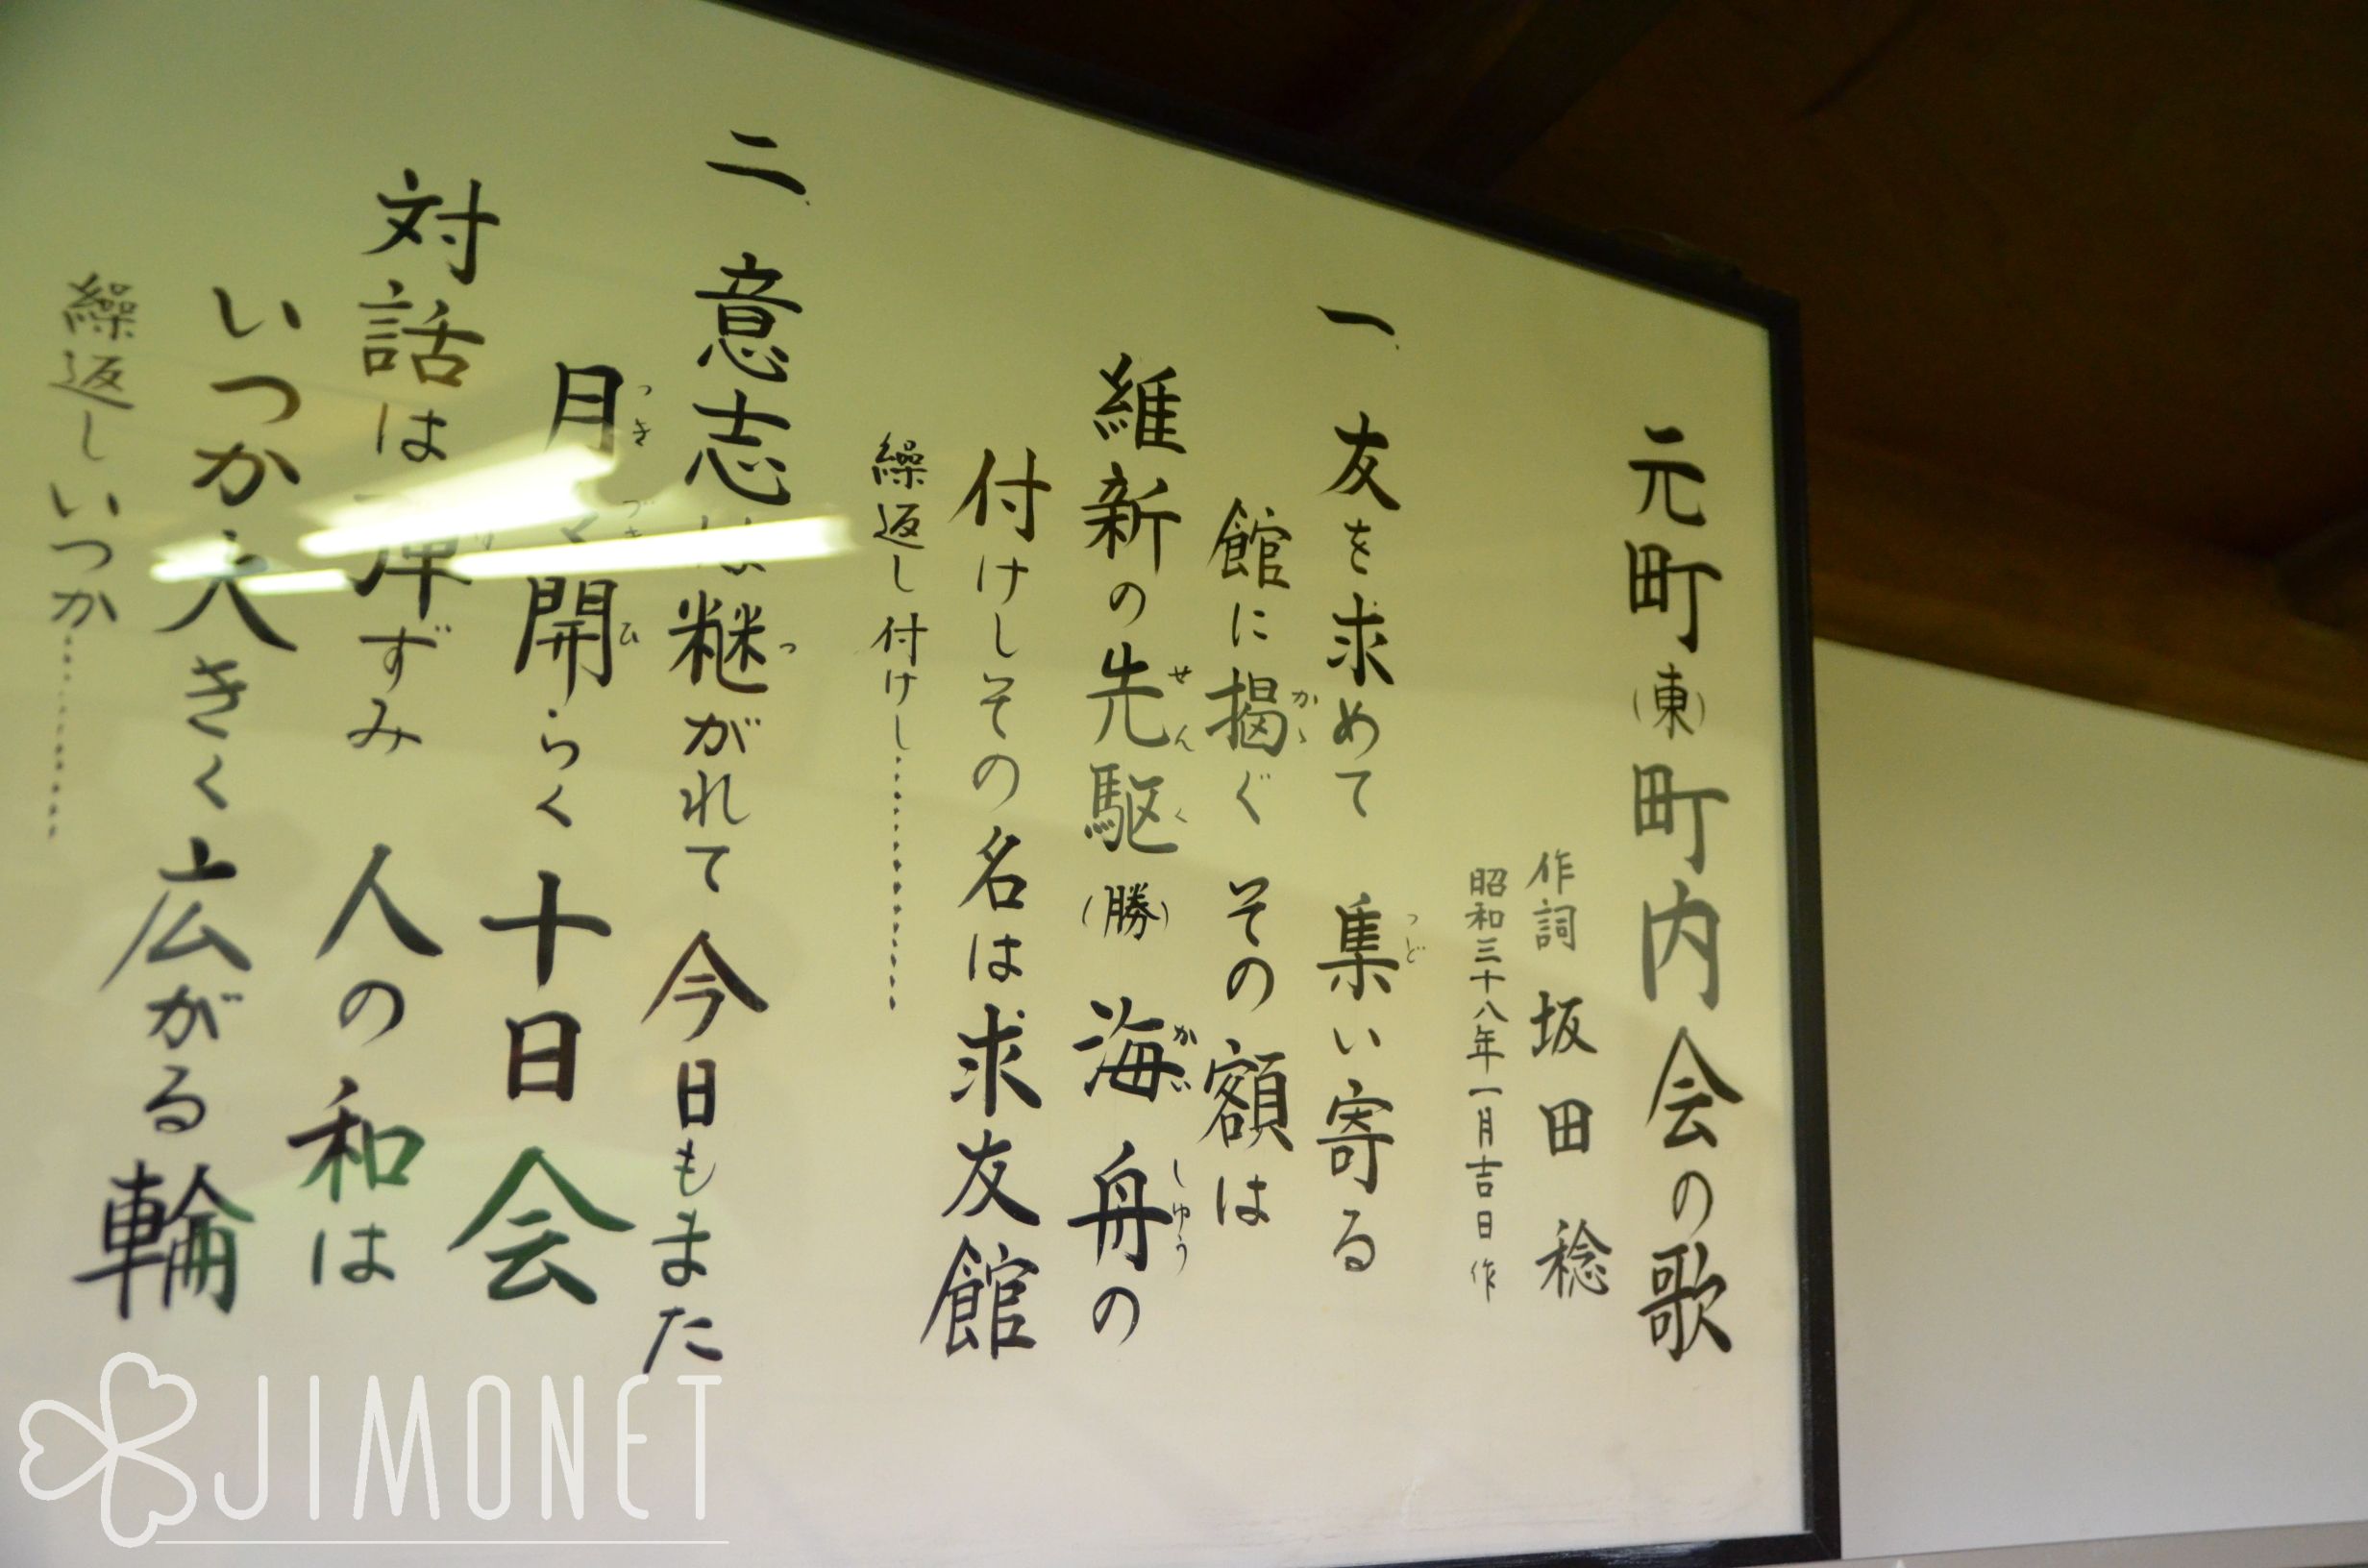 元町(東)町内会の歌
作詞 坂田 稔
昭和三十八年一月吉日 作
一、友を求めて 集い寄る
つど
館に掲ぐ その額は
かゝ
維新の先駆(勝) 海舟の
せんく かいしゅう
付けしその名は求友館
繰返し付けし…………
二、意志は継がれて今日もまた
つ
月々開らく十日会
つきづき ひ
対話は ずみ 人の和は
いつか大きく広がる輪
繰返しいつか…………
JIMONET